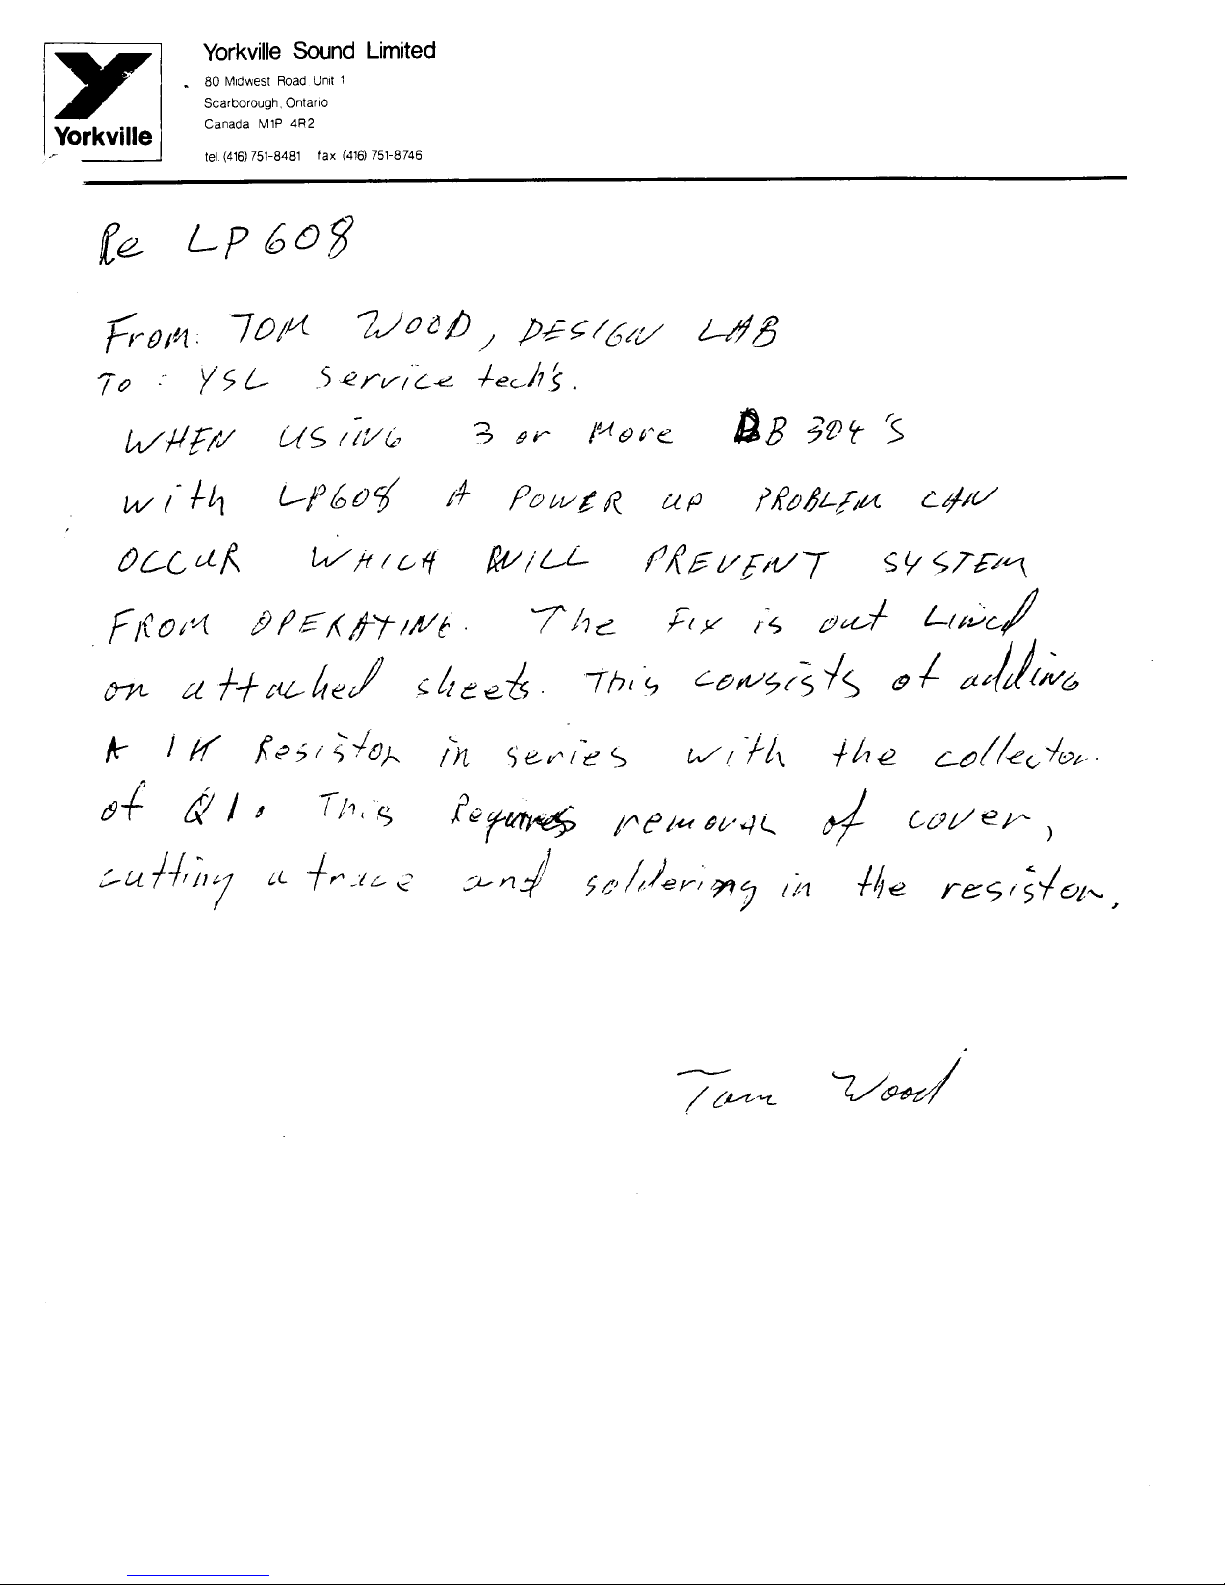 Yorkville Sound Limited
80 Midwest Road Unit 1
Scarborough, Ontario
Canada M1P 4R2
tel. (416) 751-8481 fax (416) 751-8746
Yorkville
Re LP608
From: TOM WOOD, DESIGN LAB
To : YSL Service tech's.
WHEN USING 3 or More DB 304's
with LP608 A POWER UP PROBLEM CAN
OCCUR WHICH WILL PREVENT SYSTEM
FROM OPERATING. The Fix is out Lined
on attached sheets. This consists of adding
A 1K Resistor in series with the collector
of Q1. This Requires removal of cover,
cutting a trace and soldering in the resistor.
Tom Wood